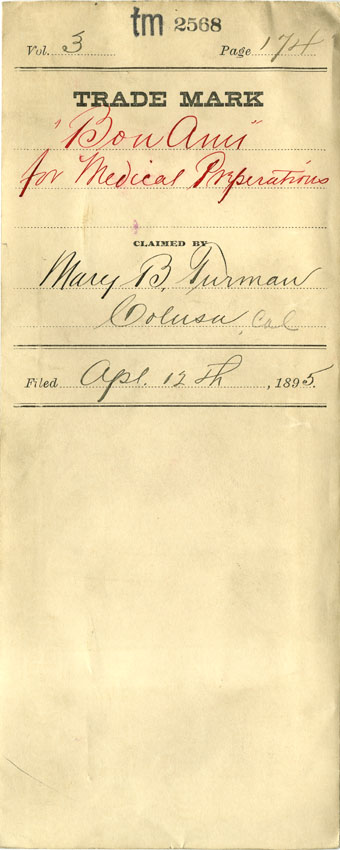 tm 2568
Vol. 3 Page 174
TRADE MARK
"Bon Ami"
for Medical Preperations
CLAIMED BY
Mary B. Turman
Colusa, Cal
Filed Apl. 12th, 1895.